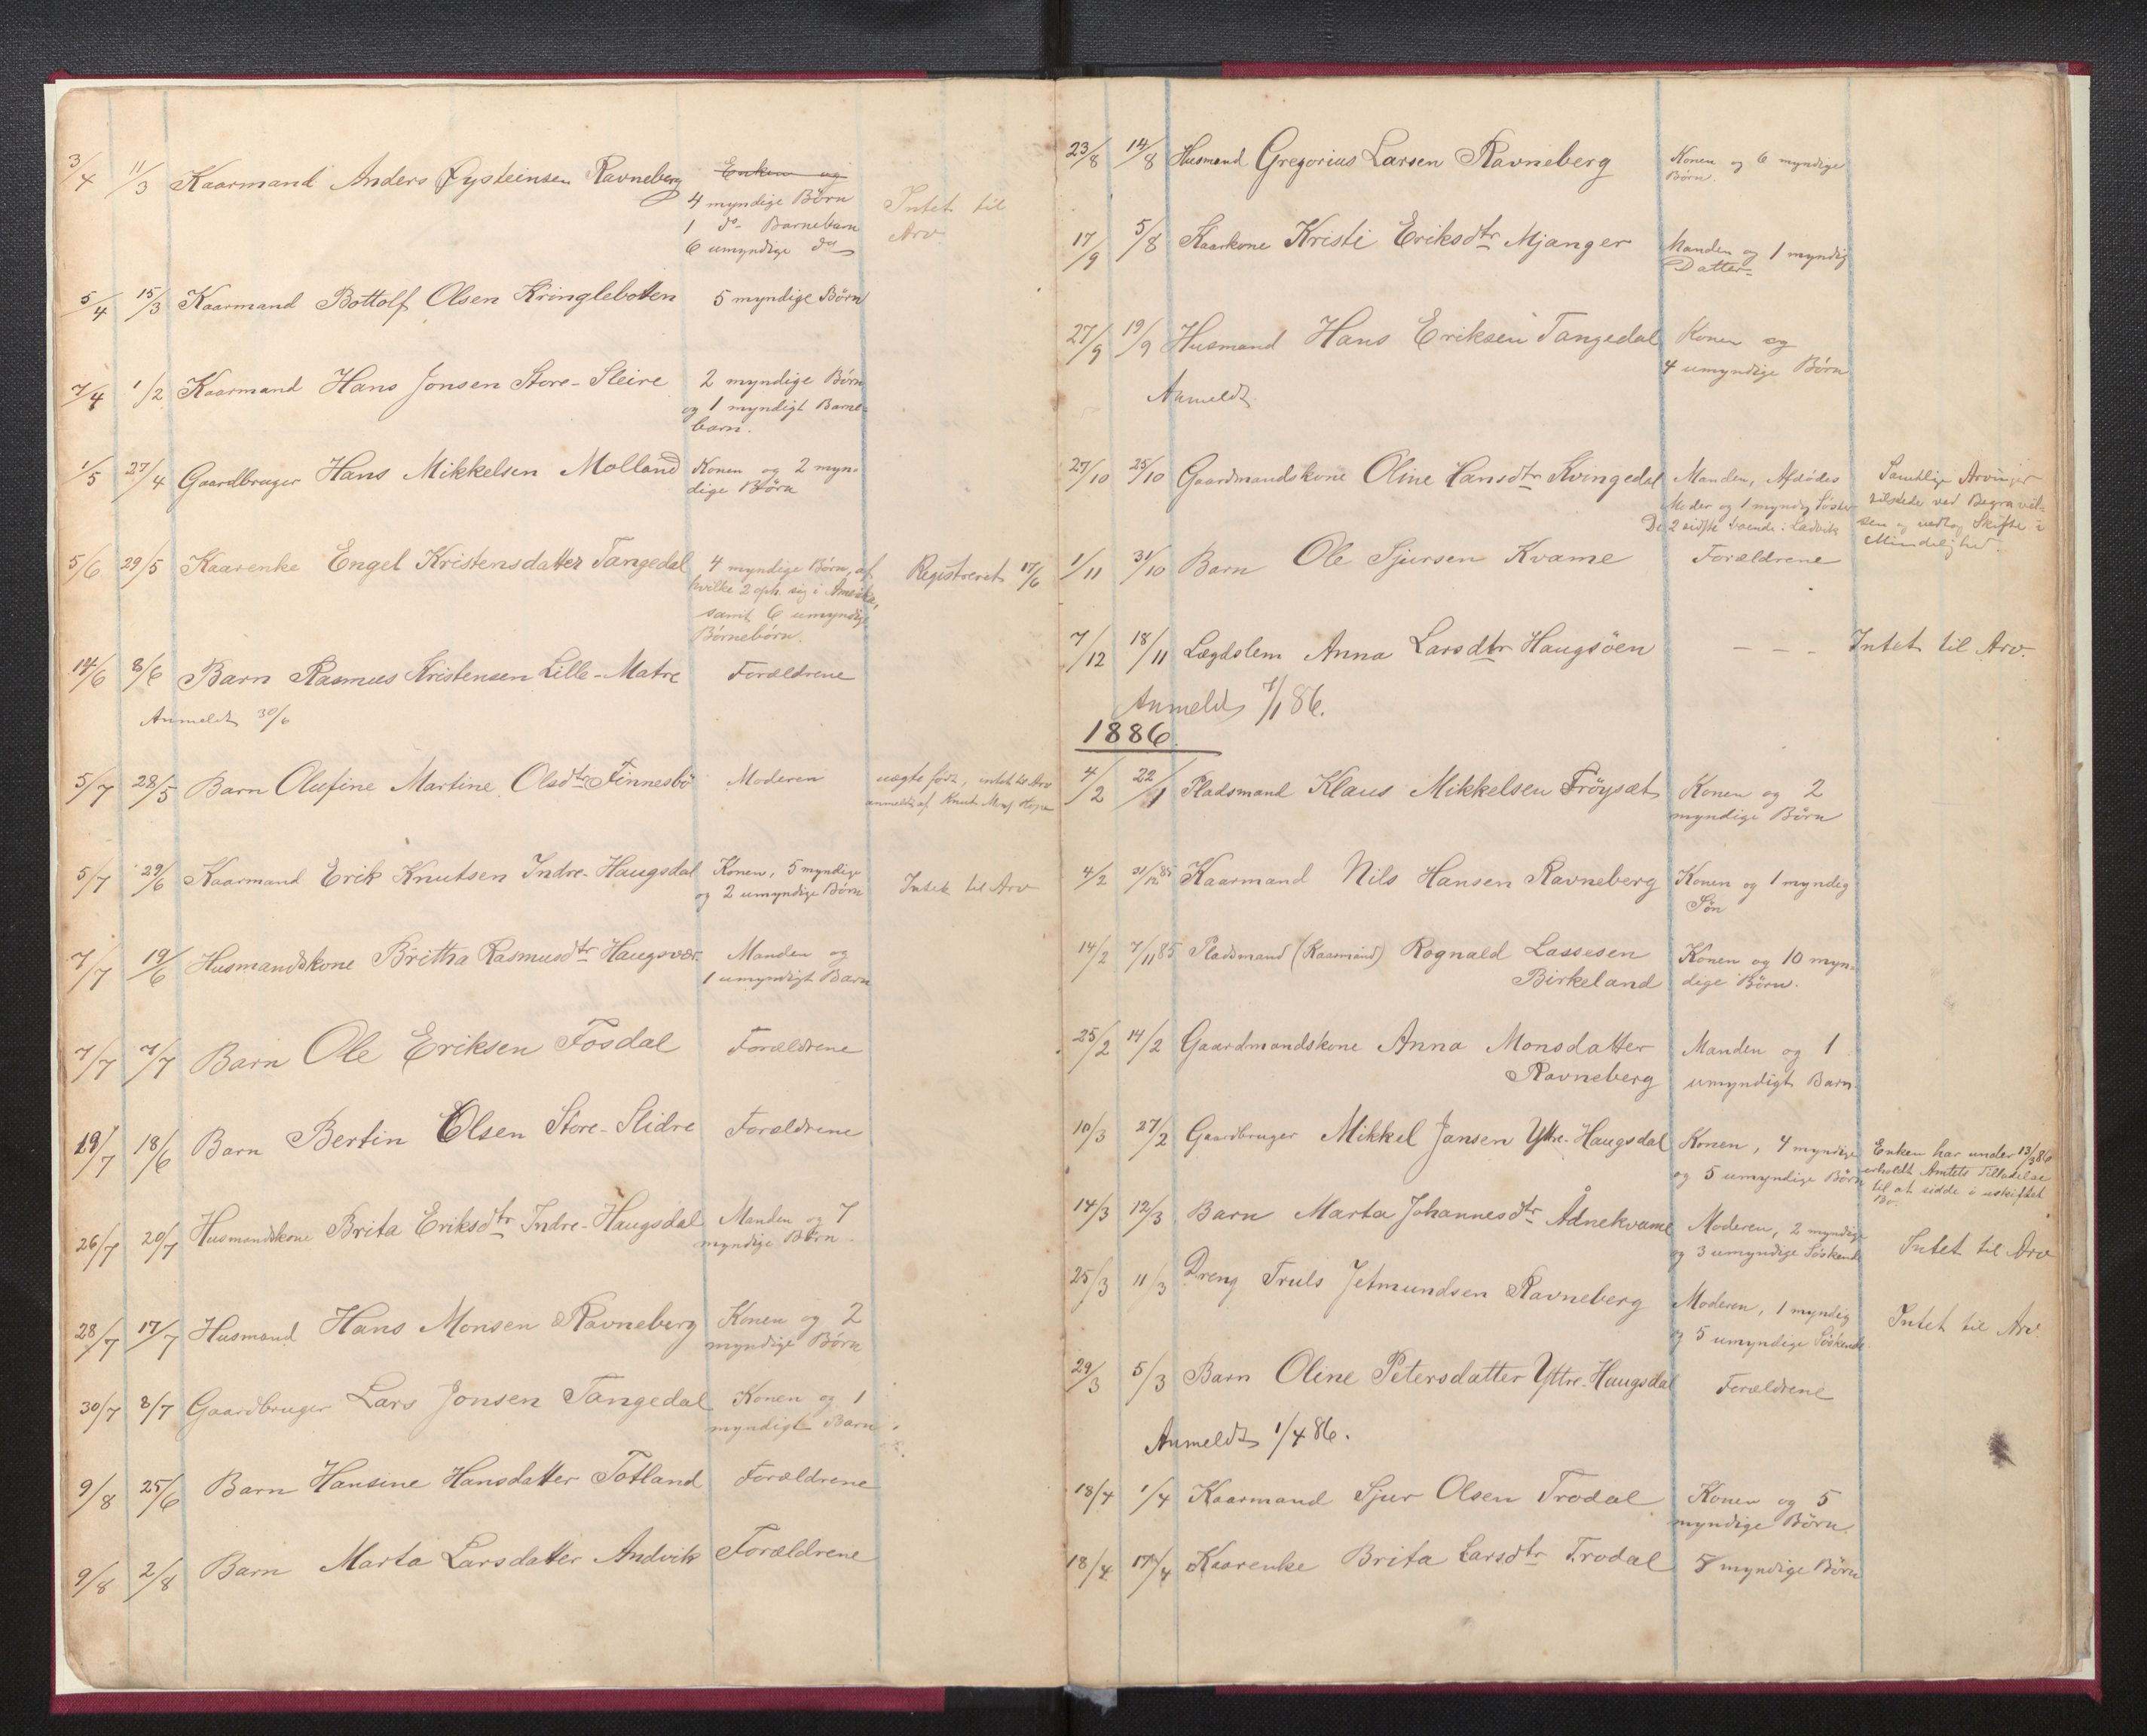 3/4 11/3 Kaarmand Anders Øysteinsen Ravneberg Enken og
4 myndige Børn
1 do Barnebarn
6 umyndige do
Intet til
Arv.
5/4 15/3 Kaarmand Bottolf Olsen Kringleboten 5 myndige Börn
7/4 1/2 Kaarmand Hans Jonsen Store-Sleire 2 myndige Börn
og 1 myndigt Barne-
barn.
1/5 27/4 Gaardbruger Hans Mikkelsen Molland Konen og 2 myn-
dige Börn
5/6 29/5 Kaarenke Engel Kristensdatter Tangedal 4 myndige Börn, af
hvilke 2 oph. sig i Amerika,
samt 6 umyndige
Börnebörn.
Registreret 17/6
14/6 8/6 Barn Rasmus Kristensen Lille-Matre Forældrene
Anmeldt 30/6
5/7 28/5 Barn Olufine Martine Olsdtr Finnesbö Moderen uægte født, intet til Arv
anmeldt af Knut
5/7 29/6 Kaarmand Erik Knutsen Indre-Haugsdal Konen, 5 myndige
og 2 umyndige Börn
Intet til Arv
7/7 19/6 Husmandskone Britha Rasmusdtr Haugsvær Manden og
1 umyndigt Barn
7/7 7/7 Barn Ole Eriksen Fosdal Forældrene
19/7 18/6 Barn Bertin Olsen Store-Slidre Forældrene
26/7 20/7 Husmandskone Brita Eriksdtr Indre-Haugsdal Manden og 7
myndige Börn
28/7 17/7 Husmand Hans Monsen Ravneberg Konen og 2
myndige Börn
30/7 8/7 Gaardbruger Lars Jonsen Tangedal Konen og 1
myndigt Barn
9/8 25/6 Barn Hansine Hansdatter Totland Forældrene
9/8 2/8 Barn Marta Larsdatter Andvik Forældrene
23/8 14/8 Husmand Gregorius Larsen Ravneberg Konen og 6 myndige
Börn.
17/9 5/8 Kaarkone Kristi Eriksdtr Mjanger Manden og 1 myndig
Datter
27/9 19/9 Husmand Hans Eriksen Tangedal Konen og
4 umyndige Börn
Anmeldt
27/10 25/10 Gaardmandskone Oline Hansdtr Kvingedal Manden, Afdødes
Moder og 1 myndig Söster
De 2 sidste boende i Ladvik
Samtlige Arvinger
tilstede ved Begravel-
sen og vedtog Skifte i
Mindelighed.
1/11 31/10 Barn Ole Sjursen Kvame Forældrene
7/12 18/11 Lægdslem Anna Larsdtr Haugsöen - - - Intet til Arv.
Anmeldt 7/1 86.
1886.
4/2 22/1 Pladsmand Klaus Mikkelsen Fröysæt Konen og 2
myndige Börn
4/2 31/12 85 Kaarmand Nils Hansen Ravneberg Konen og 1 myndig
Sön
14/2 7/11 85 Pladsmand (Kaarmand) Rognald Lassesen
Birkeland
Konen og 10 myn-
dige Börn.
25/2 14/2 Gaardmandskone Anna Monsdatter
Ravneberg
Manden og 1
umyndigt Barn
10/3 27/2 Gaardbruger Mikkel Jansen Yttre-Haugsdal Konen, 4 myndige
og 5 umyndige Börn
Enken har under 13/3 86
erholdt Amtets Tilladelse
til at sidde i uskiftet
Bo.
14/3 12/3 Barn Marta Johannesdtr Ådnekvame Moderen, 2 myndige
og 3 umyndige Söskende
Intet til Arv
25/3 11/3 Dreng Truls Jetmundsen Ravneberg Moderen, 1 myndig
og 5 umyndige Söskende
Intet til Arv.
29/3 5/3 Barn Oline Petersdatter Yttre-Haugsdal Forældrene
Anmeldt 1/4 86.
18/4 1/4 Kaarmand Sjur Olsen Trodal Konen og 5
myndige Börn.
18/4 17/4 Kaarenke Brita Larsdtr Trodal 5 myndige Börn